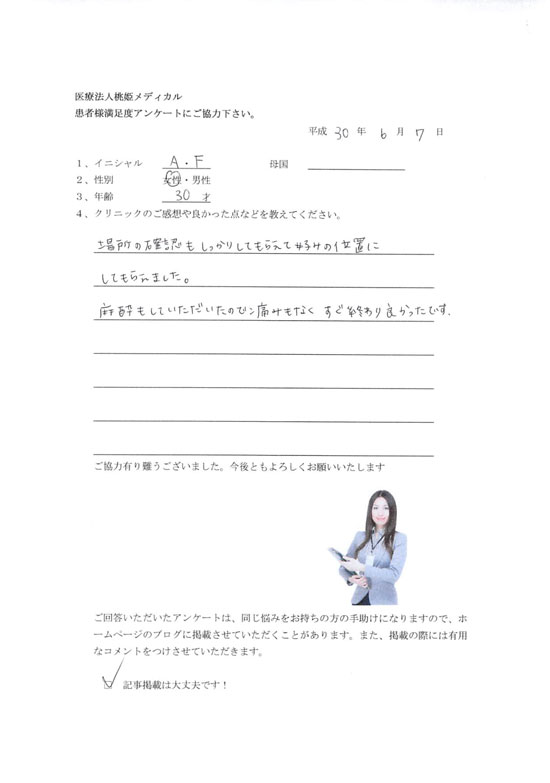 医療法人桃姫メディカル
患者様満足度アンケートにご協力下さい。
平成 30 年 6 月 7 日
1、イニシャル A・F 母国
2、性別 女性・男性
3、年齢 30 才
4、クリニックのご感想や良かった点などを教えてください。
場所の確認もしっかりしてもらえて好みの位置に
してもらえました。
麻酔もしていただいたので痛みもなく すぐ終わり良かったです.
ご協力有り難うございました。今後ともよろしくお願いいたします
ご回答いただいたアンケートは、同じ悩みをお持ちの方の手助けになりますので、ホ
ームページのブログに掲載させていただくことがあります。また、掲載の際には有用
なコメントをつけさせていただきます。
記事掲載は大丈夫です！